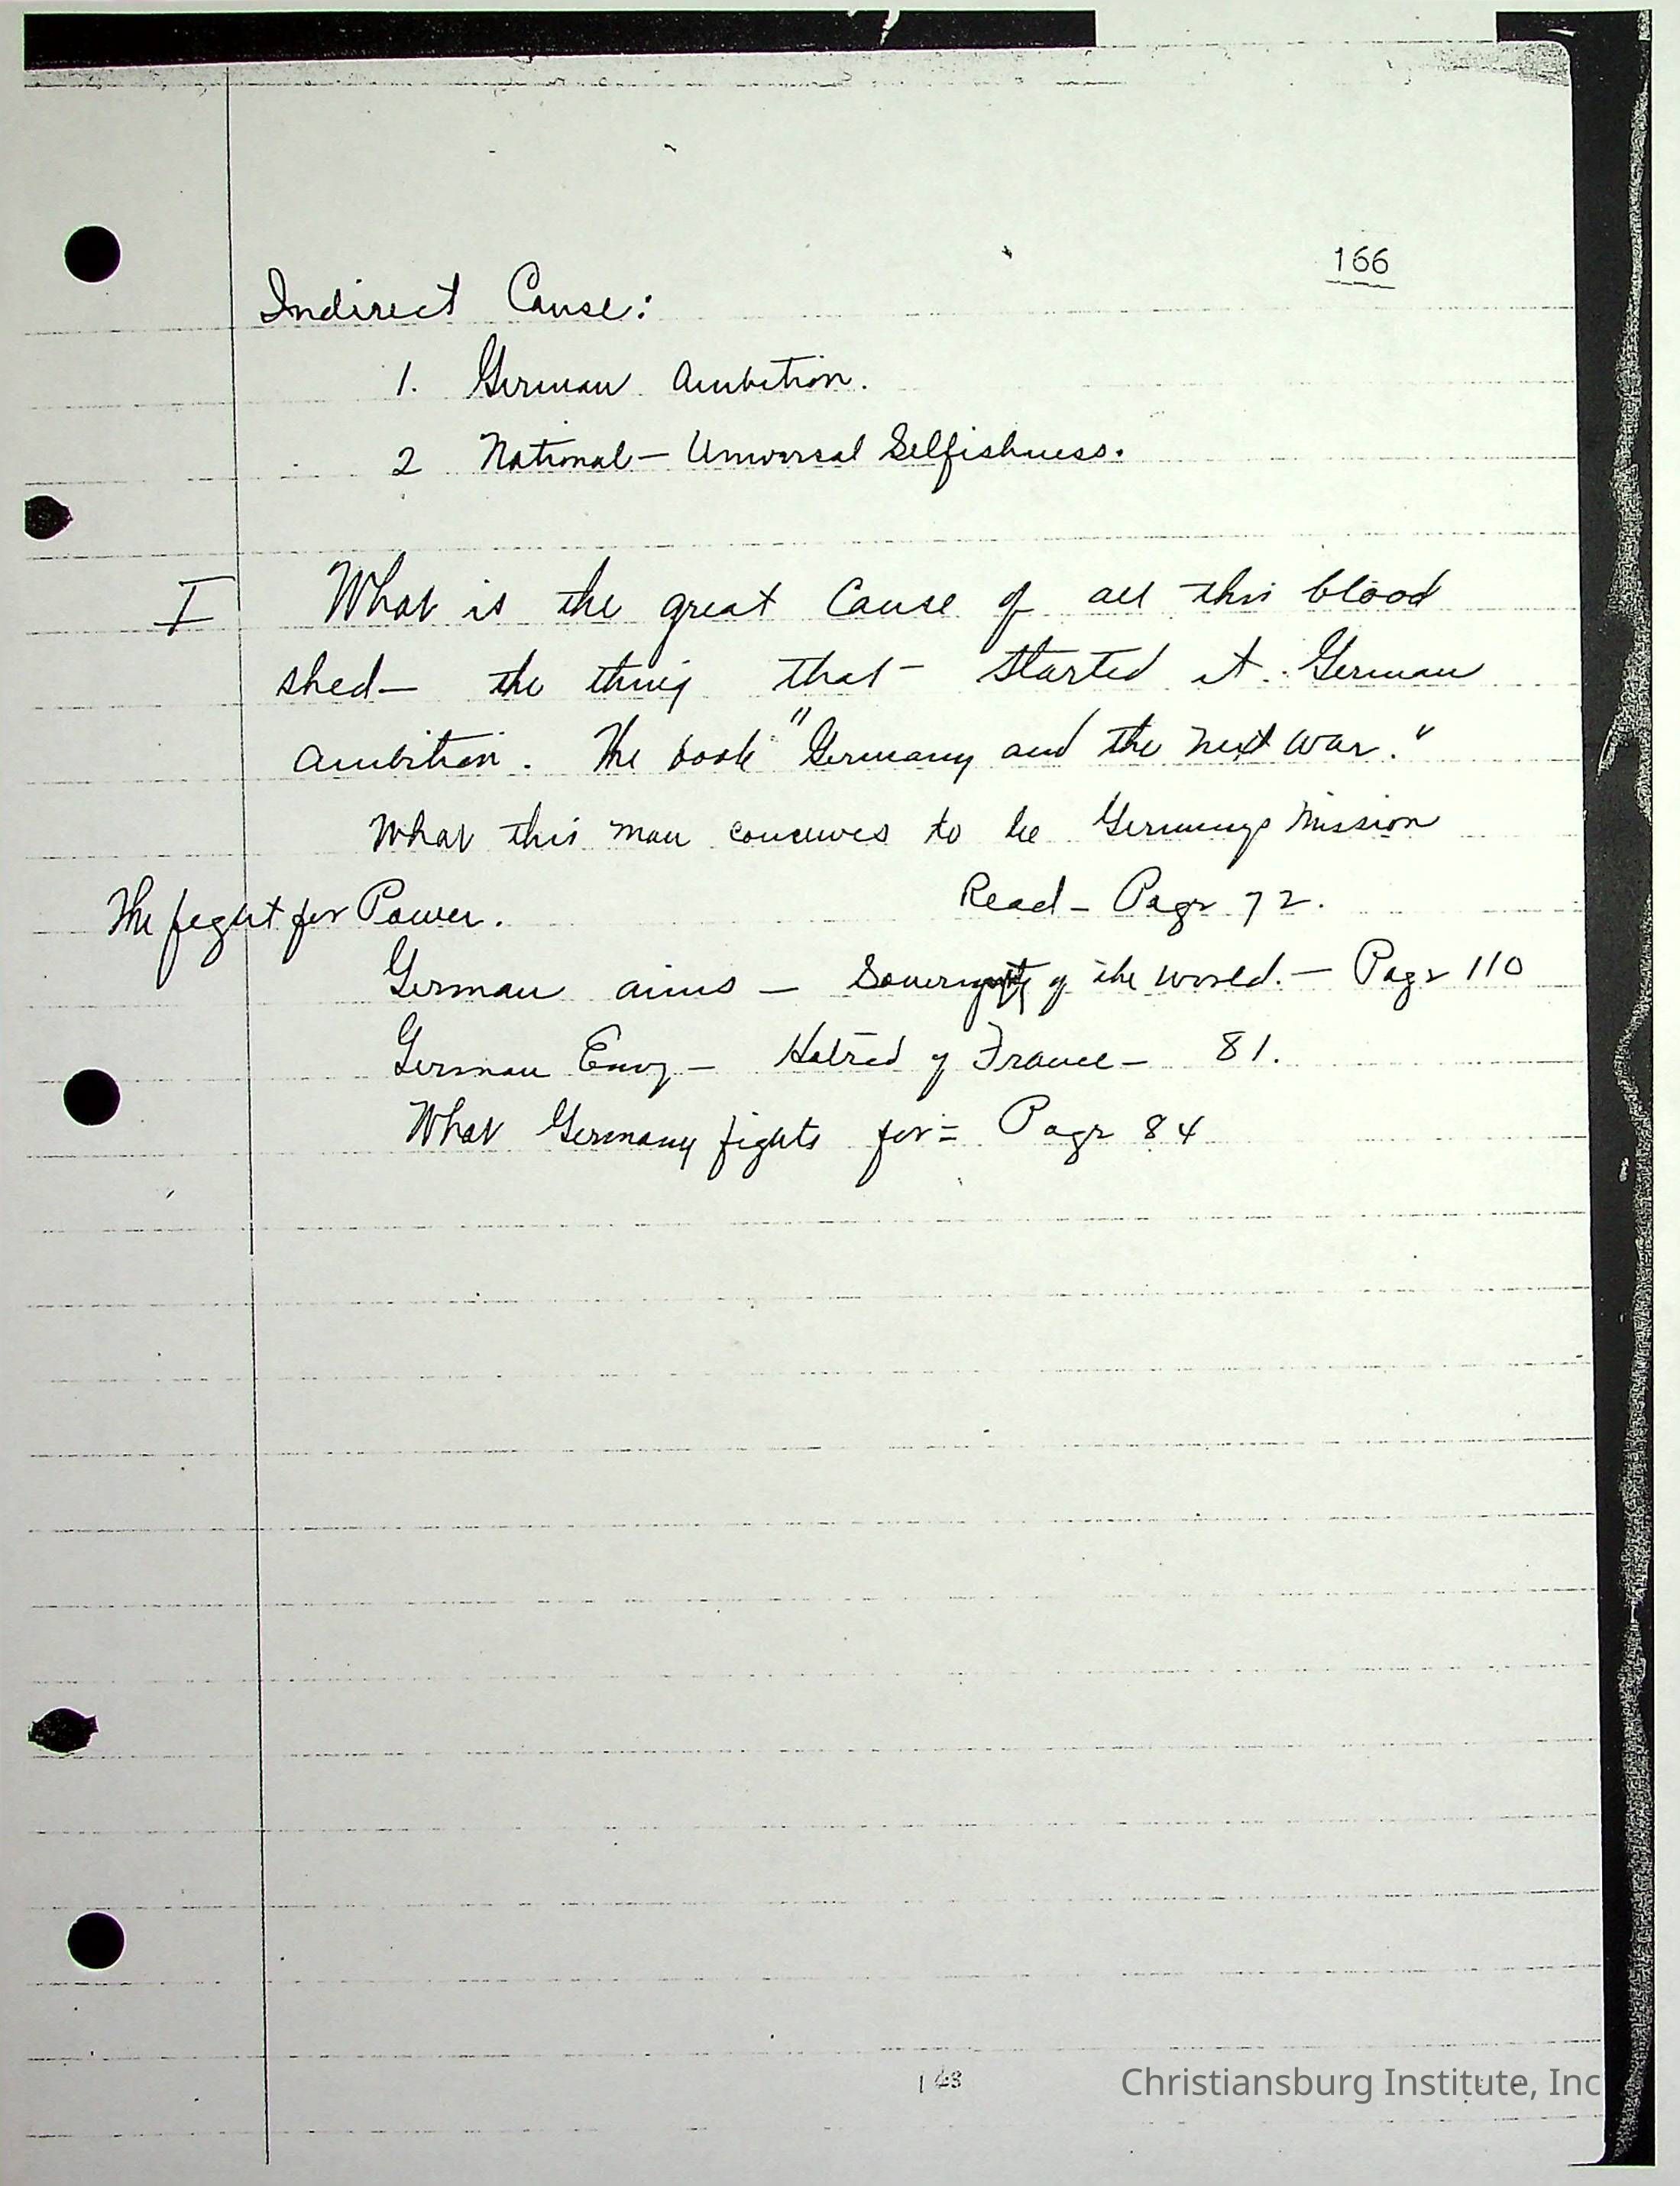 166
Indirect Cause:
1. German Ambition.
2 National — Universal Selfishness.
I What is the great Cause of all this blood
shed — the thing that — started it. German
Ambition. The book "Germany and the next war."
What this man conceives to be Germanys Mission
Read — Page 72.
The fight for Power.
German aims — of the world. — Page 110
German Envy — Hatred of France — 81.
What Germany fights for = Page 84
Christiansburg Institute, Inc